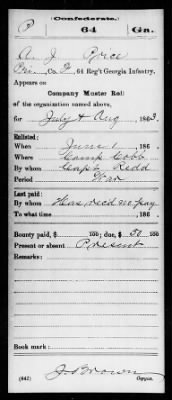 (Confederate.)
P 64 Ga.
A. J. Price
Pvt, Co. F, 64 Reg't Georgia Infantry.
Appears on
Company Muster Roll
of the organization named above,
for July & Aug, 1863.
Enlisted:
When June 1, 186
Where Camp Cobb
By whom Capt. Redd
Period War
Last paid:
By whom Has rec'd no pay
To what time, 186 .
Bounty paid, $ 100; due, $ 50 100
Present or absent Present
Remarks:
Book mark:
J. Brown
(642) Copyist.